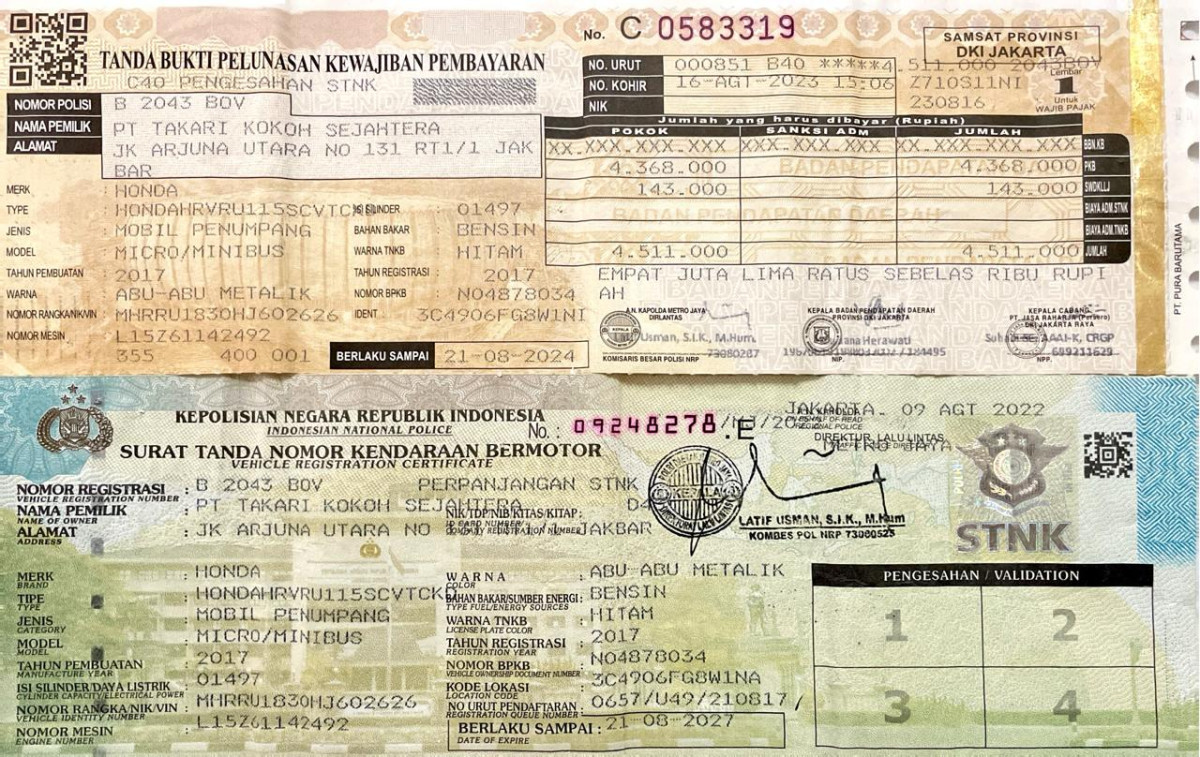 TANDA BUKTI PELUNASAN KEWAJIBAN PEMBAYARAN
C40 PENGESAHAN STNK
No. C 0583319
SAMSAT PROVINSI
DKI JAKARTA
NO. URUT 000851 B40 *****4.511.000 2043BOV
NO. KOHIR 16-AGT-2023 15:06 Z710311NI
NIK 230816
Lembar
1
Untuk
WAJIB PAJAK
NOMOR POLISI B 2043 BOV
NAMA PEMILIK PT TAKARI KOKOH SEJAHTERA
ALAMAT JK ARJUNA UTARA NO 131 RT1/1 JAK
BAR
MERK : HONDA
TYPE : HONDAHRVRU115SCVTCK ISI SILINDER : 01497
JENIS : MOBIL PENUMPANG BAHAN BAKAR : BENSIN
MODEL : MICRO/MINIBUS WARNA TNKB : HITAM
TAHUN PEMBUATAN : 2017 TAHUN REGISTRASI : 2017
WARNA : ABU-ABU METALIK NOMOR BPKB : N04878034
NOMOR RANGKA/NIK/VIN : MHRRU1830HJ602626 IDENT 3C4906FG8W1NI
NOMOR MESIN : L15Z61142492
355 400 001 BERLAKU SAMPAI 21-08-2024
Jumlah yang harus dibayar (Rupiah)
POKOK SANKSI ADM JUMLAH
XX.XXX.XXX.XXX XX.XXX.XXX.XXX XX.XXX.XXX.XXX BBN.KB
4.368.000 4.368.000 PKB
143.000 143.000 SWDKLLJ
BIAYA ADM.STNK
BIAYA ADM.TNKB
4.511.000 4.511.000 JUMLAH
EMPAT JUTA LIMA RATUS SEBELAS RIBU RUPI
AH
A.N. KAPOLDA METRO JAYA
DIRLANTAS
Latif Usman, S.I.K., M.Hum.
KOMISARIS BESAR POLISI NRP 73060287
KEPALA BADAN PENDAPATAN DAERAH
PROVINSI DKI JAKARTA
Herawati
KEPALA CABANG
PT. JASA RAHARJA (Persero)
DKI JAKARTA RAYA
AAAI-K, CRGP
NPP. 699211629
PT. PURA BARUTAMA
KEPOLISIAN NEGARA REPUBLIK INDONESIA
INDONESIAN NATIONAL POLICE
No. : 09248278.E
SURAT TANDA NOMOR KENDARAAN BERMOTOR
VEHICLE REGISTRATION CERTIFICATE
JAKARTA. 09 AGT 2022
A.N. KAPOLDA
ON BEHALF OF HEAD
REGIONAL POLICE
DIREKTUR LALU LINTAS
METRO JAYA
LATIF USMAN, S.I.K., M.Hum
KOMBES POL NRP 73060525
STNK
NOMOR REGISTRASI : B 2043 BOV PERPANJANGAN STNK
VEHICLE REGISTRATION NUMBER
NAMA PEMILIK : PT TAKARI KOKOH SEJAHTERA
NAME OF OWNER
NIK/TDP/NIB/KITAS/KITAP :
ALAMAT : JK ARJUNA UTARA NO JAKBAR
ADDRESS
MERK : HONDA
BRAND
TIPE : HONDAHRVRU115SCVTCKD
TYPE
JENIS : MOBIL PENUMPANG
CATEGORY
MODEL : MICRO/MINIBUS
MODEL
TAHUN PEMBUATAN : 2017
MANUFACTURE YEAR
ISI SILINDER/DAYA LISTRIK : 01497
CYLINDER CAPACITY/ELECTRICAL POWER
NOMOR RANGKA/NIK/VIN : MHRRU1830HJ602626
VEHICLE IDENTITY NUMBER
NOMOR MESIN : L15Z61142492
ENGINE NUMBER
WARNA : ABU-ABU METALIK
COLOR
BAHAN BAKAR/SUMBER ENERGI : BENSIN
TYPE FUEL/ENERGY SOURCES
WARNA TNKB : HITAM
LICENSE PLATE COLOR
TAHUN REGISTRASI : 2017
REGISTRATION YEAR
NOMOR BPKB : N04878034
VEHICLE OWNERSHIP DOCUMENT NUMBER
KODE LOKASI : 3C4906FG8W1NA
LOCATION CODE
NO URUT PENDAFTARAN : 0657/U49/210817/
REGISTRATION QUEUE NUMBER
BERLAKU SAMPAI : 21-08-2027
DATE OF EXPIRE
PENGESAHAN / VALIDATION
1 2
3 4